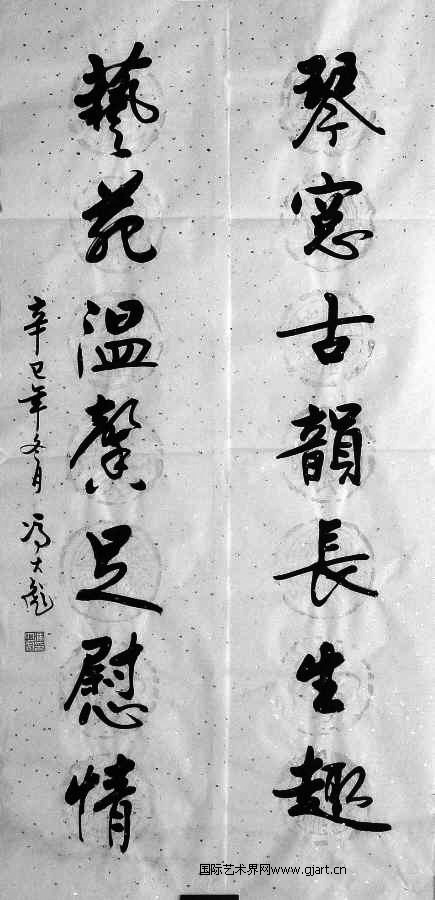 琴窓古韻長生趣
藝苑溫馨足慰情
辛巳年冬月 馮大彪
国际艺术界网www.gjart.cn